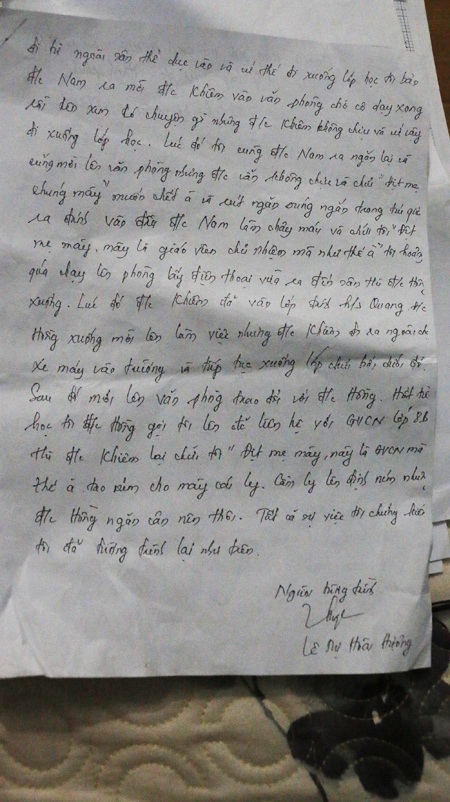 đi hè ngoài sân thể dục vào và vì thế đi xuống lớp học tôi bảo
đ/c Nam ra mời đ/c Khiêm vào văn phòng chờ cô dạy xong
rồi lên xem có chuyện gì nhưng đ/c Khiêm không chịu và vẫn
đi xuống lớp học. Lúc đó tôi cùng đ/c Nam ra ngăn lại và
cũng mời lên văn phòng nhưng đ/c vẫn không chịu và chửi "Địt mẹ
chúng mày muốn chết à và rút ngăn súng ngắn trong túi
ra đánh vào đ/c Nam làm chảy máu và chửi tôi "Địt
mẹ mày, mày là giáo viên chủ nhiệm mà như thế à" tôi hoảng
quá chạy lên phòng lấy điện thoại vừa ra đến sân thì đ/c Hồng
xuống. Lúc đó đ/c Khiêm đã vào lớp đánh h/s Quang đ/c
Hồng xuống mời lên làm việc nhưng đ/c Khiêm đi ra ngoài
xe máy vào trường và tiếp tục xuống lớp chửi bới
Sau đó mời lên văn phòng trao đổi với đ/c Hồng. Hết
học tôi đ/c Hồng gọi tôi lên để liên hệ với GVCN lớp 8B
thì đ/c Khiêm lại chửi tôi "Địt mẹ mày, mày là GVCN mà
thế à tao ném cho mày cốc ly. Cầm ly lên định ném nhưng
đ/c Hồng ngăn cản nên thôi. Tất cả sự việc tôi chứng kiến
tôi đã tường trình lại như trên.
Người tường trình
Lê Thị Hoài Hương